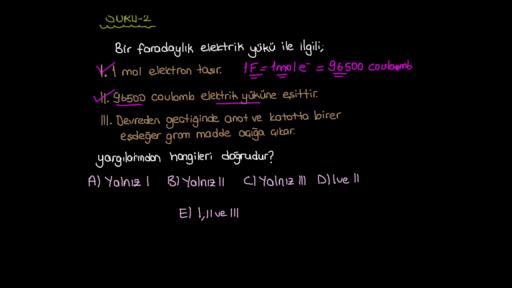 SORU-2
Bir faradaylık elektrik yükü ile ilgili;
I. 1 mol elektron taşır. 1F = 1mol e⁻ = 96500 coulomb
II. 96500 coulomb elektrik yüküne eşittir.
III. Devreden geçtiğinde anot ve katotta birer
eşdeğer gram madde açığa çıkar.
yargılarından hangileri doğrudur?
A) Yalnız I B) Yalnız II C) Yalnız III D) I ve II
E) I, II ve III